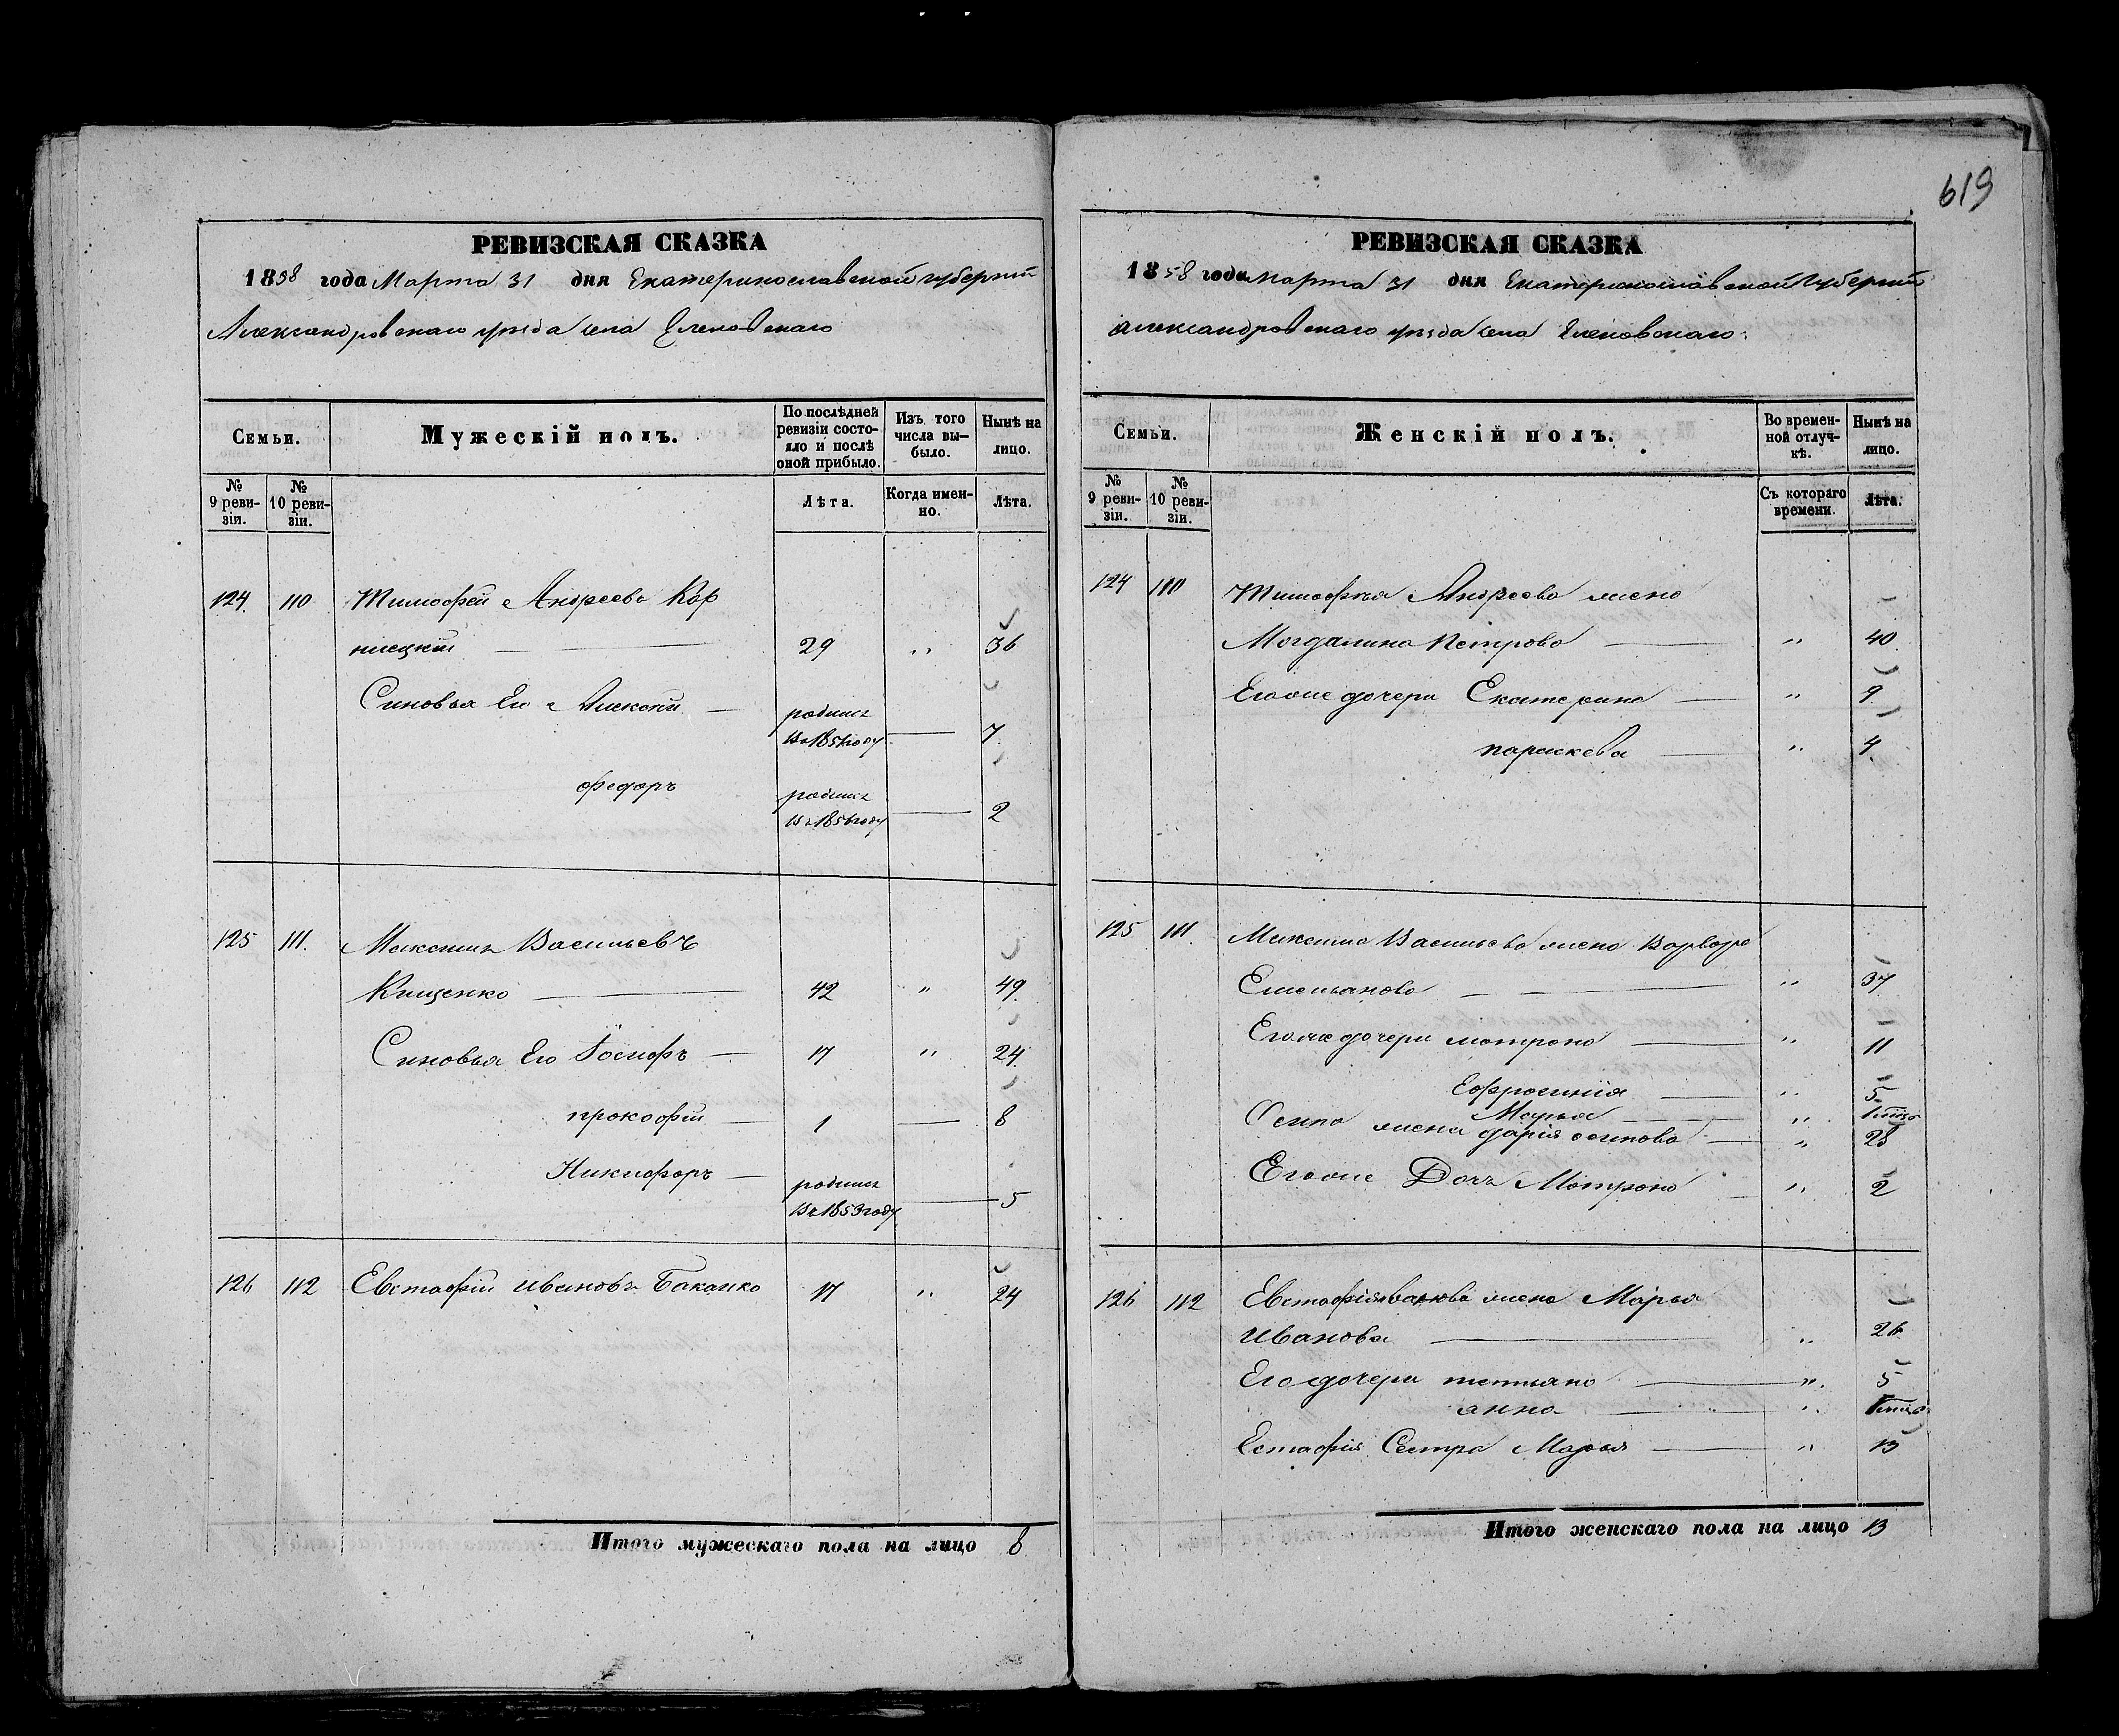 619
РЕВИЗСКАЯ СКАЗКА
1858 года Марта 31 дня Екатеринославской губерніи
Александровскаго уѣзда села Еленовскаго
Семьи. Мужескій полъ. По послѣдней ревизіи состояло и послѣ оной прибыло. Изъ того числа выбыло. Нынѣ на лицо.
№ 9 ревизіи. № 10 ревизіи. Лѣта. Когда именно. Лѣта.
124. 110 Тимофей Андреевъ Кор
ницкій — 29 " 36
Синовья Его Алексѣй — родился
въ 1851 году — 7.
Федоръ родился
въ 1856 году — 2
125 111. Максимъ Васильевъ
Кищенко — 42 " 49.
Синовья Его Іосифъ — 17 " 24.
прокофій — 1 — 8
Никифоръ — родился
въ 1853 году — 5
126 112 Евстафій Ивановъ Баканко 17 " 24
Итого мужескаго пола на лицо 8
РЕВИЗСКАЯ СКАЗКА
1858 года марта 31 дня Екатеринославской Губерніи
александровскаго уѣзда села Еленовскаго.
Семьи. Женскій полъ. Во временной отлучкѣ. Нынѣ на лицо.
№ 9 ревизіи. № 10 ревизіи. Съ котораго времени. Лѣта.
124 110 Тимофѣя Андреева жена
Могдалина Петрова — " 40.
Егоже дочери Екатерина — " 9.
параскева — " 4.
125 111. Максима Васильева жена Варвара
Емельянова — " 37
Егоже дочери мотрона — " 11
Ефросинія — " 5.
Марья — "
Осипа жена дарія осипова — " 28
Егоже Дочь Мотрона — " 2
126 112 Евстафія Иванова жена Марья
Иванова — " 26
Его дочери татьяна — " 5
анна — "
Естафія Сестра Марья — " 13
Итого женскаго пола на лицо 13